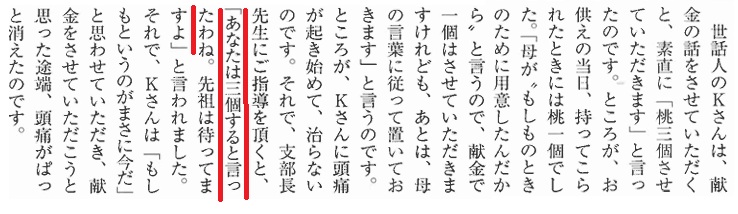 世話人のＫさんは、献
金の話をさせていただく
と、素直に「桃三個させ
ていただきます」と言っ
たのです。ところが、お
供えの当日、持ってこら
れたときには桃一個でし
た。「母が〝もしものとき
のために用意したんだか
ら〟と言うので、献金で
一個はさせていただきま
すけれども、あとは、母
の言葉に従って置いてお
きます」と言うのです。
ところが、Ｋさんに頭痛
が起き始めて、治らない
のです。それで、支部長
先生にご指導を頂くと、
「あなたは三個すると言っ
たわね。先祖は待ってま
すよ」と言われました。
それで、Ｋさんは「もし
もというのがまさに今だ」
と思わせていただき、献
金をさせていただこうと
思った途端、頭痛がぱっ
と消えたのです。